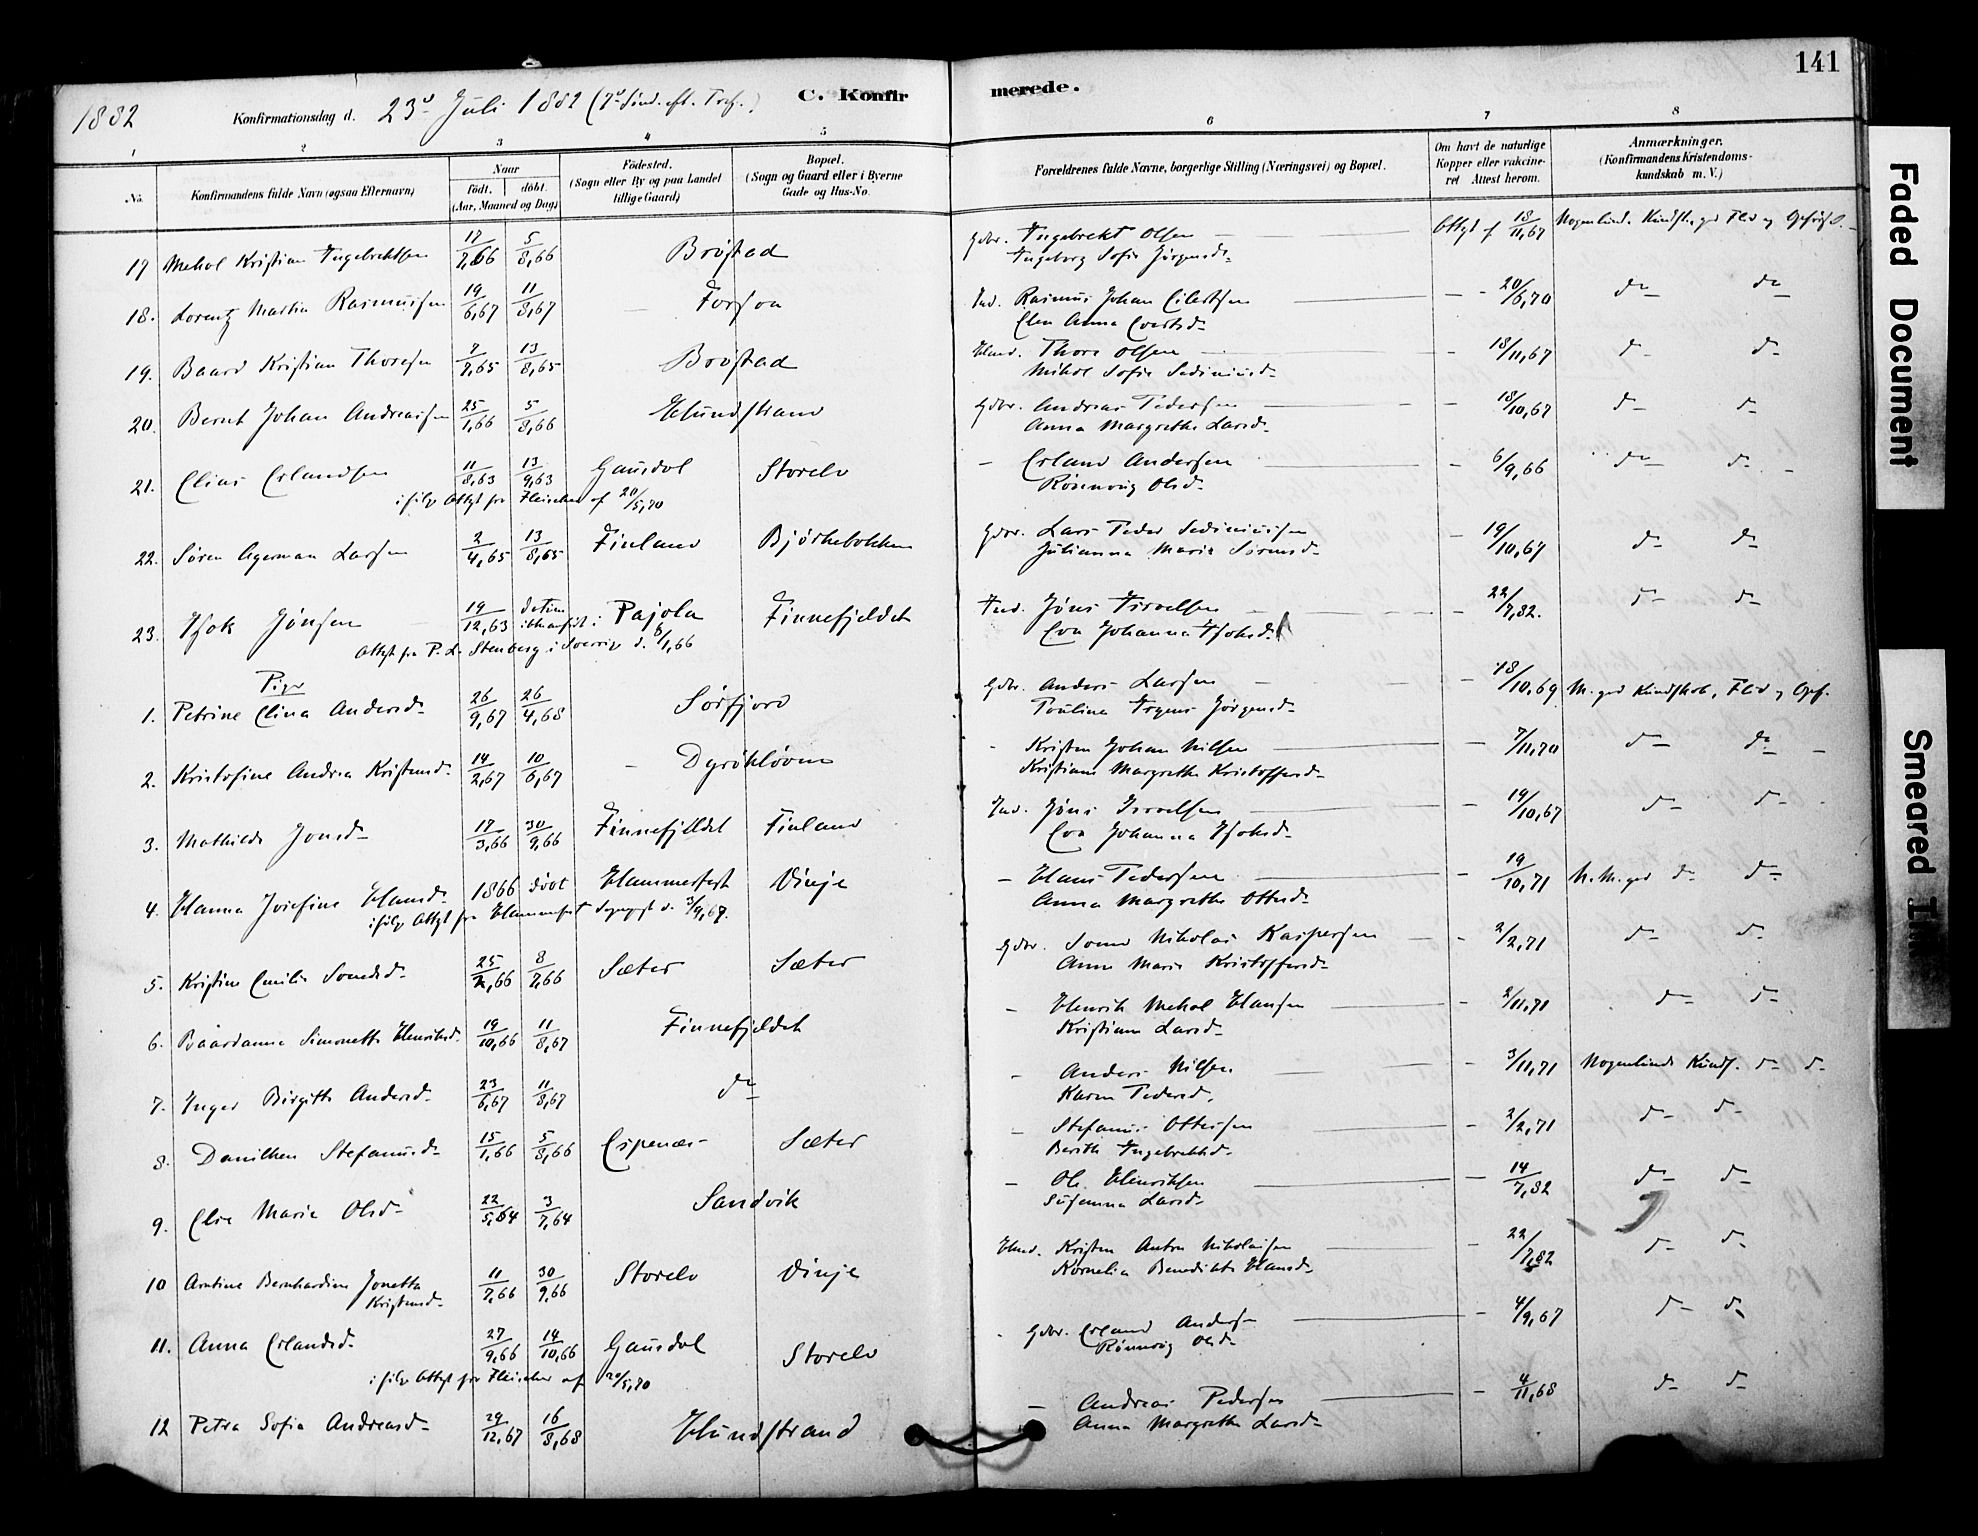 141
1882 Konfirmationsdag d. 23d Juli 1882 C. Konfirmerede.
1 2 3 4 5 6 7 8
No. Konfirmandens fulde Navn (ogsaa Efternavn) Naar født. døbt. (Aar, Maaned og Dag) Fødested. (Sogn eller By og paa Landet tillige Gaard) Bopæl. (Sogn og Gaard eller i Byerne Gade og Hus-No. Forældrenes fulde Navne, borgerlige Stilling (Næringsvei) og Bopæl. Om havt de naturlige Kopper eller vakcineret Attest herom. Anmærkninger. (Konfirmandens Kristendomskundskab m. V.)
17 Mekal Kristian Ingebrektsen 17/7,66 5/8,66 Brøstad Gdbr. Ingebrekt Olsen Attest af 18/11,67
Ingeborg Sofie Jørgensd.
18. Lorentz Martin Rasmussen 19/6,67 11/8,67 Forsoa Ind. Rasmus Johan Eilertsen 20/6,70 do do
Elen Anna
19. Baard Kristian Thoresen 7/7,65 13/8,65 Brøstad Thore Olsen 18/11,67 d d
Mikol Sofie
20. Bernt Johan Andreassen 25/1,66 5/8,66 Hundstrand Gdbr. Andreas Pedersen 18/10,67 d d
Anna Margrethe Larsd.
21. Elias Erlandsen 11/8,63 13/9,63 Gausdal Storelv - Erland Andersen 6/9,66 do d
ifølge Attest fra Fleischer af 20/5,70 Rønnoug Olsd.
22. Søren Agerman Larsen 2/4,65 13/8,65 Finland Bjørkebakken Gdbr. Lars Peder 19/10,67 d d
Julianna Marie Sørensd.
23. Isak Jønsen 19/12,63 Pajola Finnefjeldet Ind. Jøns Isralsen 22/7,82. d d
Attest fra P. L. Stenberg i Sverrig d. 8/1,66 Eva Johanna Isaksd.
Piger
1. Petrine Elina Andersd. 26/9,67 26/4,68 Sørfjord Gdbr. Anders Larsen 18/10,69 M. god Kundskab, Flid
Paulina Jørgensd.
2. Kristofine Andrea Kristensd. 14/2,67 10/6,67 Dyrøkløven - Kristen Johan Nilsen 7/11,70 d do
Kristiane Margrethe Kristoffersd.
3. Mathilde Jonsd 17/3,66 30/9,66 Finnefjeldet Finland Ind. Jøns Isralsen 19/10,67 d d
Eva Johanna Isaksd.
4. Hanna Josefine Hansd. 1866 døbt Hammerfest Vinje - Hans Pedersen 19/10,71 N. M. god d d
ifølge Attest fra Hammerfest d. 3/9,67. Anna Margrethe Ottesd.
5. Kristine Emilie 25/2,66 8/7,66 Sæter Sæter Gdbr. Nikolai Kaspersen 2/2,71 d d
Anne Marie Kristoffersd.
6. Baardanna Simonette Henriksd. 19/10,66 11/8,67 Finnefjeldet - Henrik Mekal Hansen 2/11,71 d d
Kristiane Larsd.
7. Inger Birgitte Andersd. 23/6,67 11/8,67 do - Anders Nilsen 3/11,71 Nogenlunde Kundsk. d d
Karen Pedersd.
8. Danilken Stefanusd. 15/1,66 5/8,66 Espenæs Sæter - Stefanus Ottesen 2/2,71 d d
Berith Ingebrektsd.
9. Else Marie Olsd. 22/5,64 3/7,64 Sandvik - Ole Henriksen 14/7,82 d d
Susanna Larsd.
10 Arntine Bernhardine Jonetta 11/7,66 30/9,66 Storelv Vinje Kristen Anton Nikolaisen 22/7,82 d d
Kristensd. Kornelia Benedikte Hansd.
11. Anna Erlandsd. 27/9,66 14/10,66 Gausdal Storelv Gdbr. Erland Anders 4/9,67 d d
ifølge Attest fra Fleischer af 20/5,70 Rønnoug Olsd.
12 Petra Sofia Andreasd. 29/12,67 16/8,68 Hundstrand - Andreas Pedersen 4/11,68 d d
Anna Margrethe Larsd.
Faded Document
Smeared